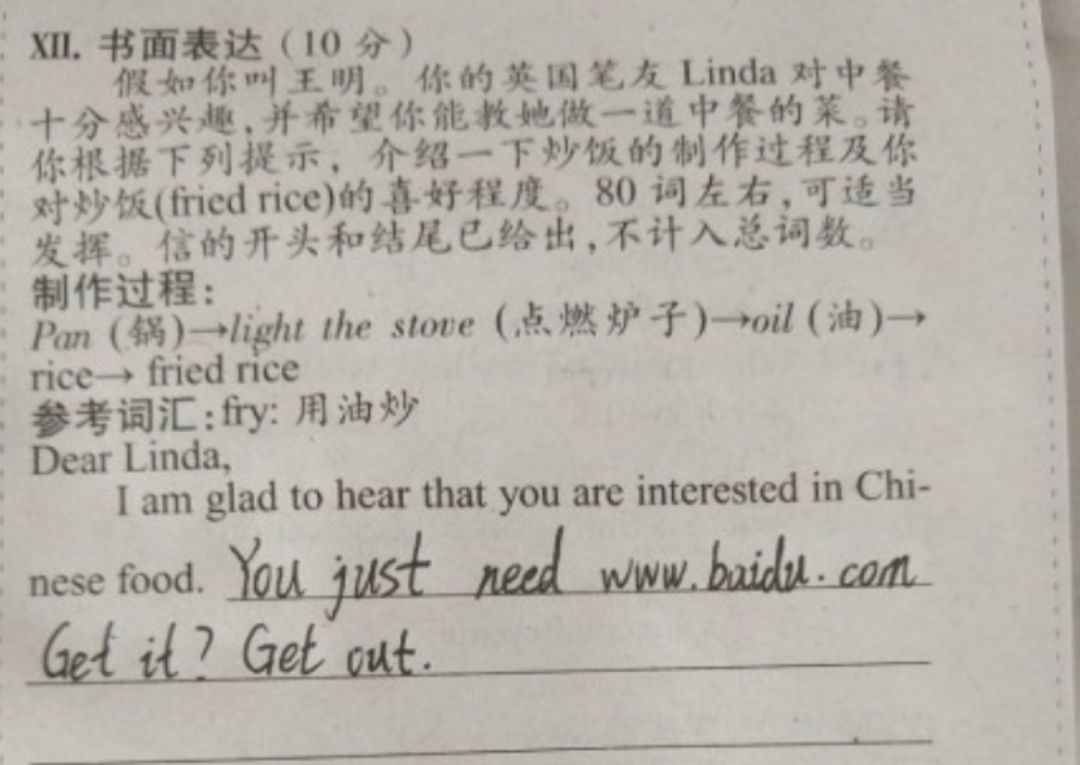 XII. 书面表达（10 分）
假如你叫王明。你的英国笔友 Linda 对中餐
十分感兴趣，并希望你能教她做一道中餐的菜。请
你根据下列提示，介绍一下炒饭的制作过程及你
对炒饭(fried rice)的喜好程度。80 词左右，可适当
发挥。信的开头和结尾已给出，不计入总词数。
制作过程：
Pan (锅)→light the stove (点燃炉子)→oil (油)→
rice→ fried rice
参考词汇：fry: 用油炒
Dear Linda,
I am glad to hear that you are interested in Chi-
nese food. You just need www.baidu.com
Get it? Get out.